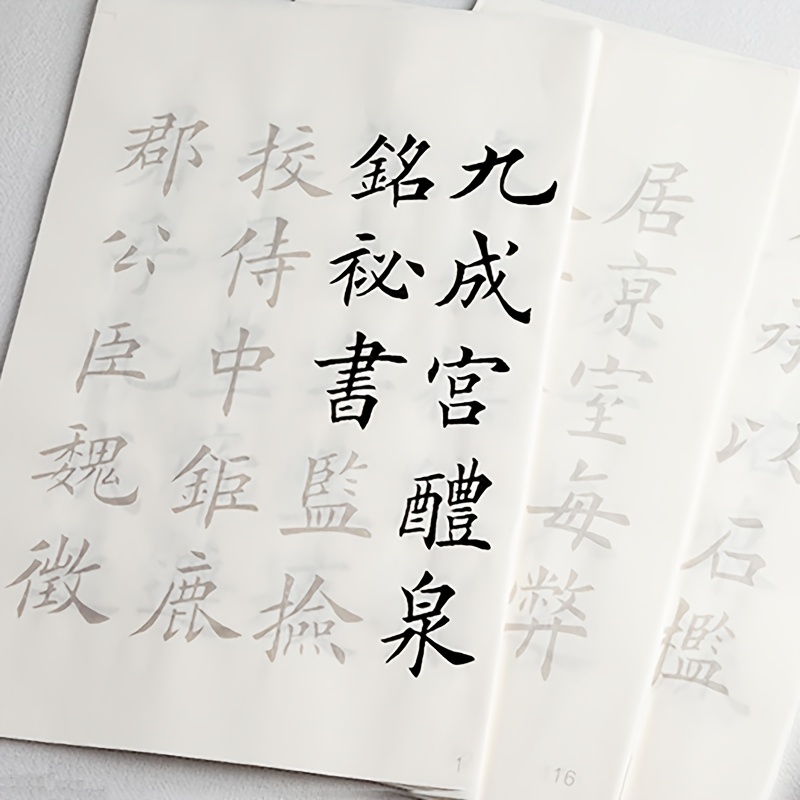 九成宮醴泉
銘祕書監撿
挍侍中鉅鹿
郡公臣魏徵
1
居京室每弊
16
承以石檻